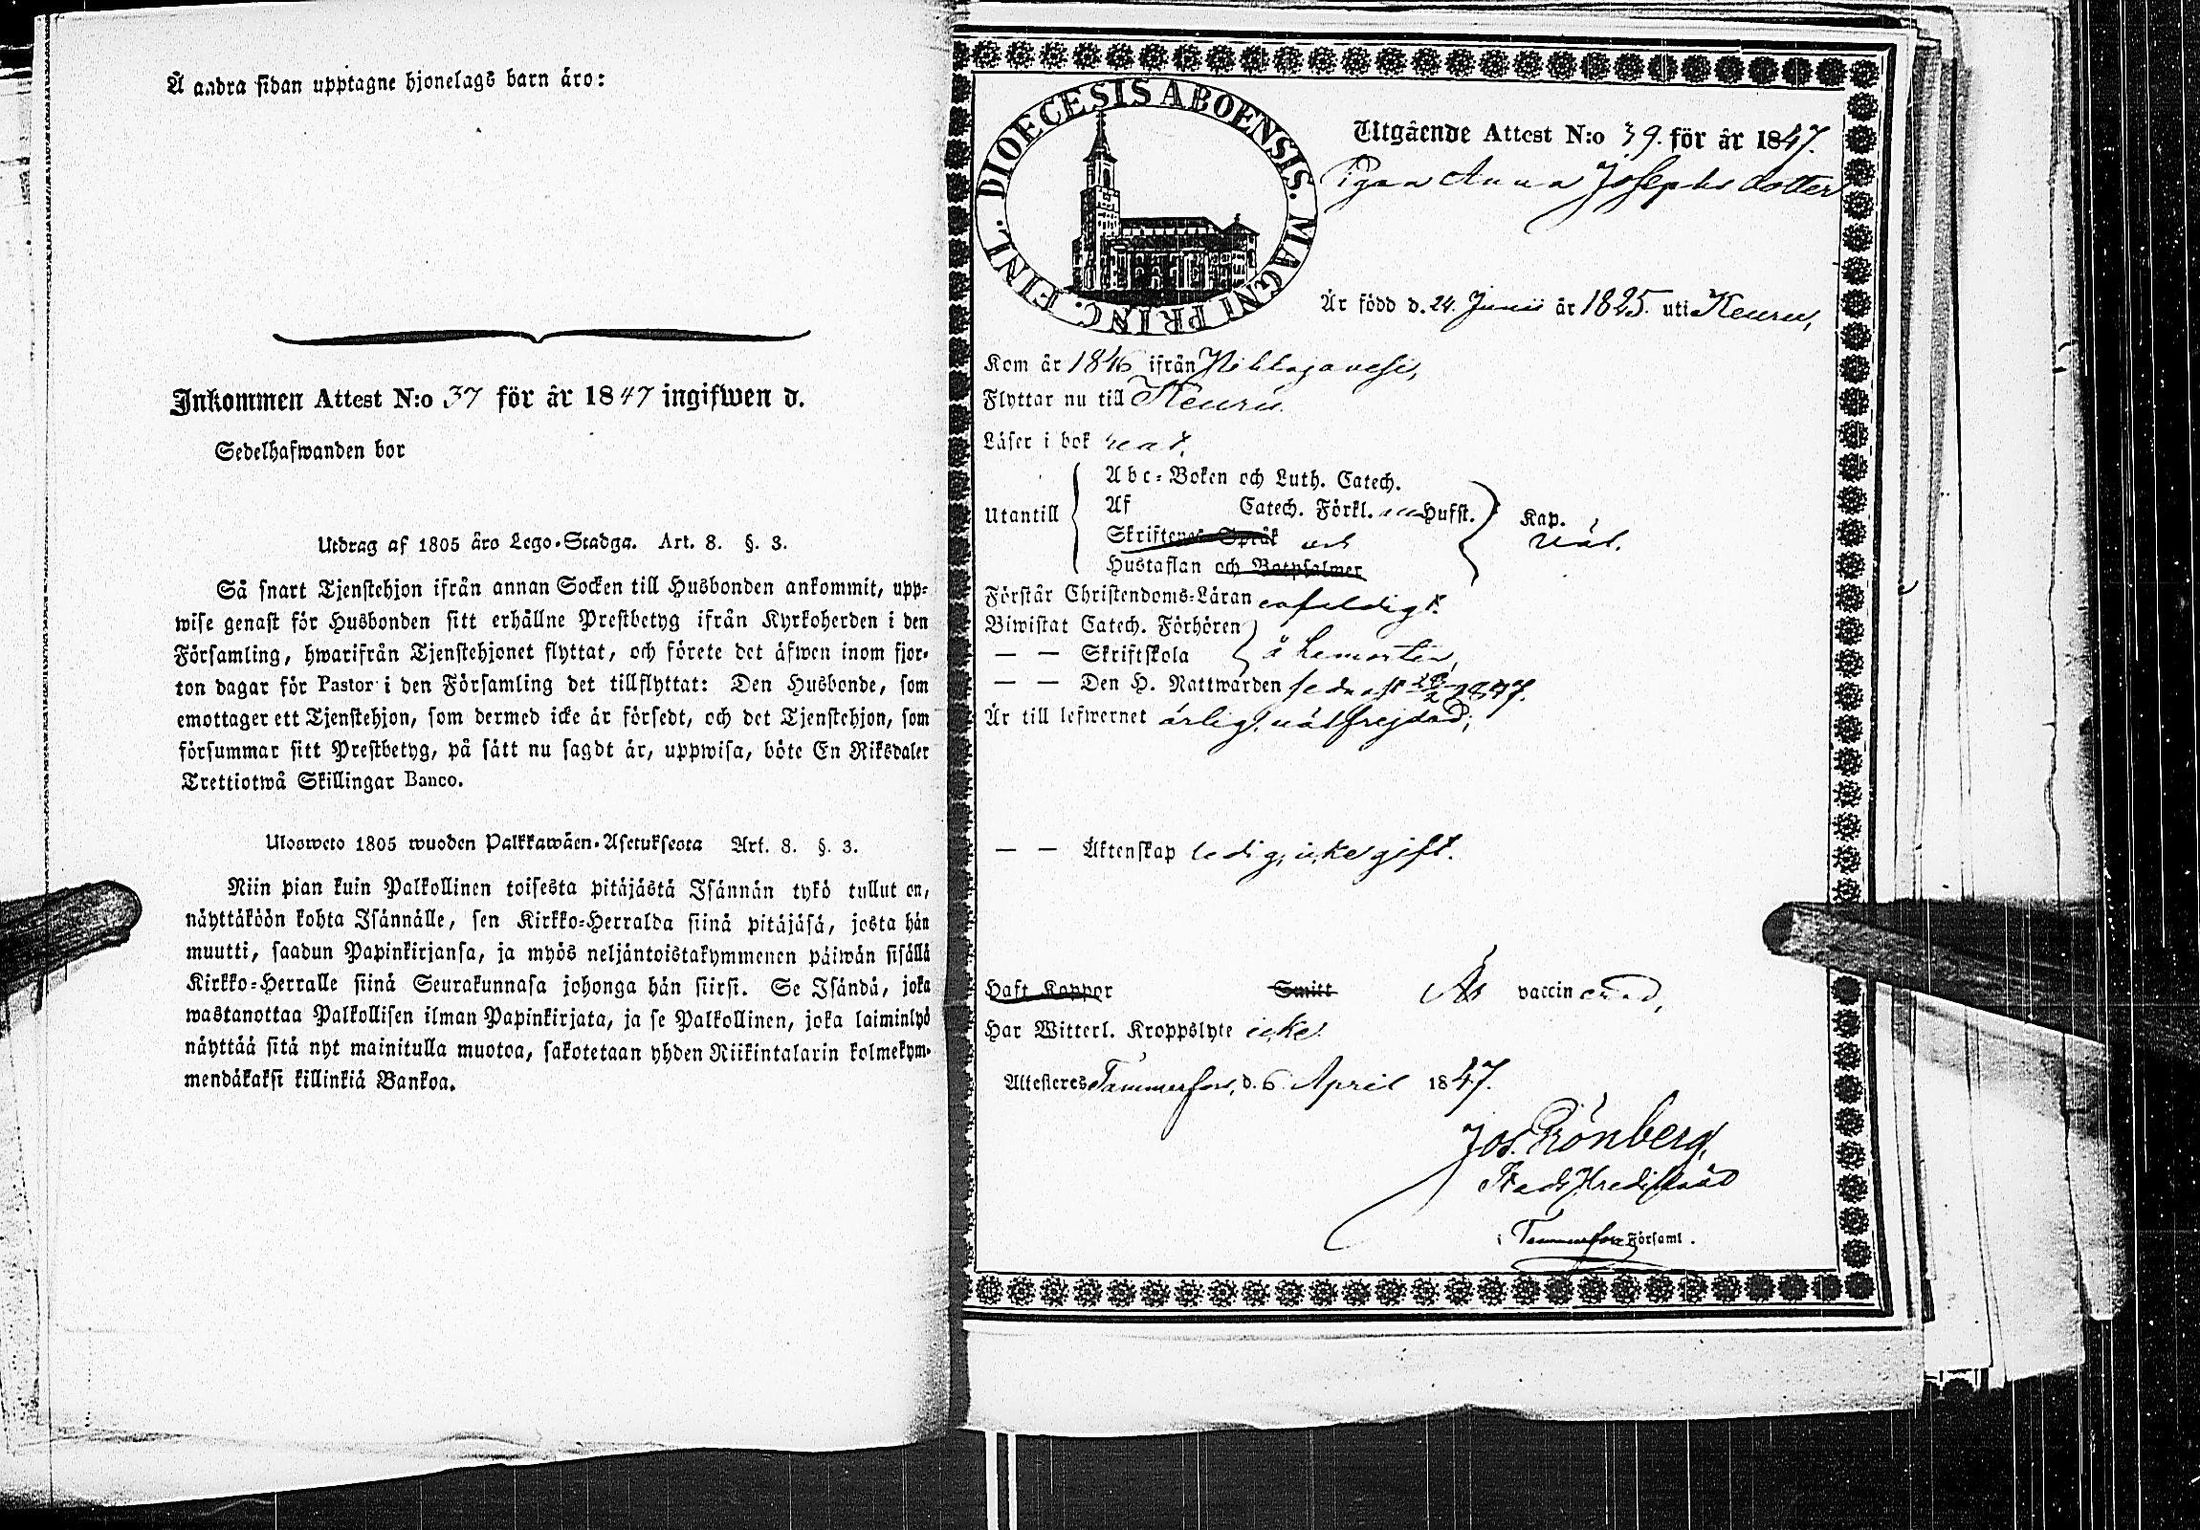 Å andra sidan upptagne hjonelags barn äro:
Inkommen Attest N:o 37 för år 1847 ingifwen d.
Sedelhafwanden bor
Utdrag af 1805 års Lego-Stadga. Art. 8. §. 3.
Så snart Tjenstehjon ifrån annan Socken till Husbonden ankommit, upp-
wise genast för Husbonden sitt erhållne Prestbetyg ifrån Kyrkoherden i den
Församling, hwarifrån Tjenstehjonet flyttat, och förete det äfwen inom fjor-
ton dagar för Pastor i den Församling det tillflyttat: Den Husbonde, som
emottager ett Tjenstehjon, som dermed icke är försedt, och det Tjenstehjon, som
försummar sitt Prestbetyg, på sätt nu sagdt är, uppwisa, böte En Riksdaler
Trettiotwå Skillingar Banco.
Ulosweto 1805 wuoden Palkkawäen-Asetuksesta Art. 8. §. 3.
Niin pian kuin Palkollinen toisesta pitäjästä Isännän tykö tullut on,
näyttäköön kohta Isännälle, sen Kirkko-Herralda siinä pitäjäsä, josta hän
muutti, saadun Papinkirjansa, ja myös neljäntoistakymmenen päiwän sisällä
Kirkko-Herralle siinä Seurakunnasa johonga hän siirsi. Se Isändä, joka
wastanottaa Palkollisen ilman Papinkirjata, ja se Palkollinen, joka laiminlyö
näyttää sitä nyt mainitulla muotoa, sakotetaan yhden Riikintalarin kolmekym-
mendäkaksi killinkiä Bankoa.
DIOECESIS ABOENSIS. MAGNI PRINC. FINL.
Utgående Attest N:o 39. för år 1847.
Pigan Anna Josephsdotter
Är född d. 24. Junii år 1825. uti Keuru,
Kom år 1846 ifrån
Flyttar nu till Keuru.
Läser i bok
Utantill
Abc-Boken och Luth. Catech.
Af Catech. Förkl. Husst. Kap.
Skriftenes Språk och väl.
Hustaflan och Botpsalmer
Förstår Christendoms-Läran enfaldigt.
Biwistat Catech. Förhören
— — Skriftskola å hemorten,
— — Den H. Nattwarden sednast 28/2 1847.
Är till lefwernet ärlig, välfrejdad;
— — Äktenskap ledig, icke gift.
Haft Koppor Smitt Är vaccinerad,
Har Witterl. Kroppslyte icke.
Attesteres Tammerfors, d. 6 April 1847.
Jos. Grönberg,
i Tammerfors Församl.